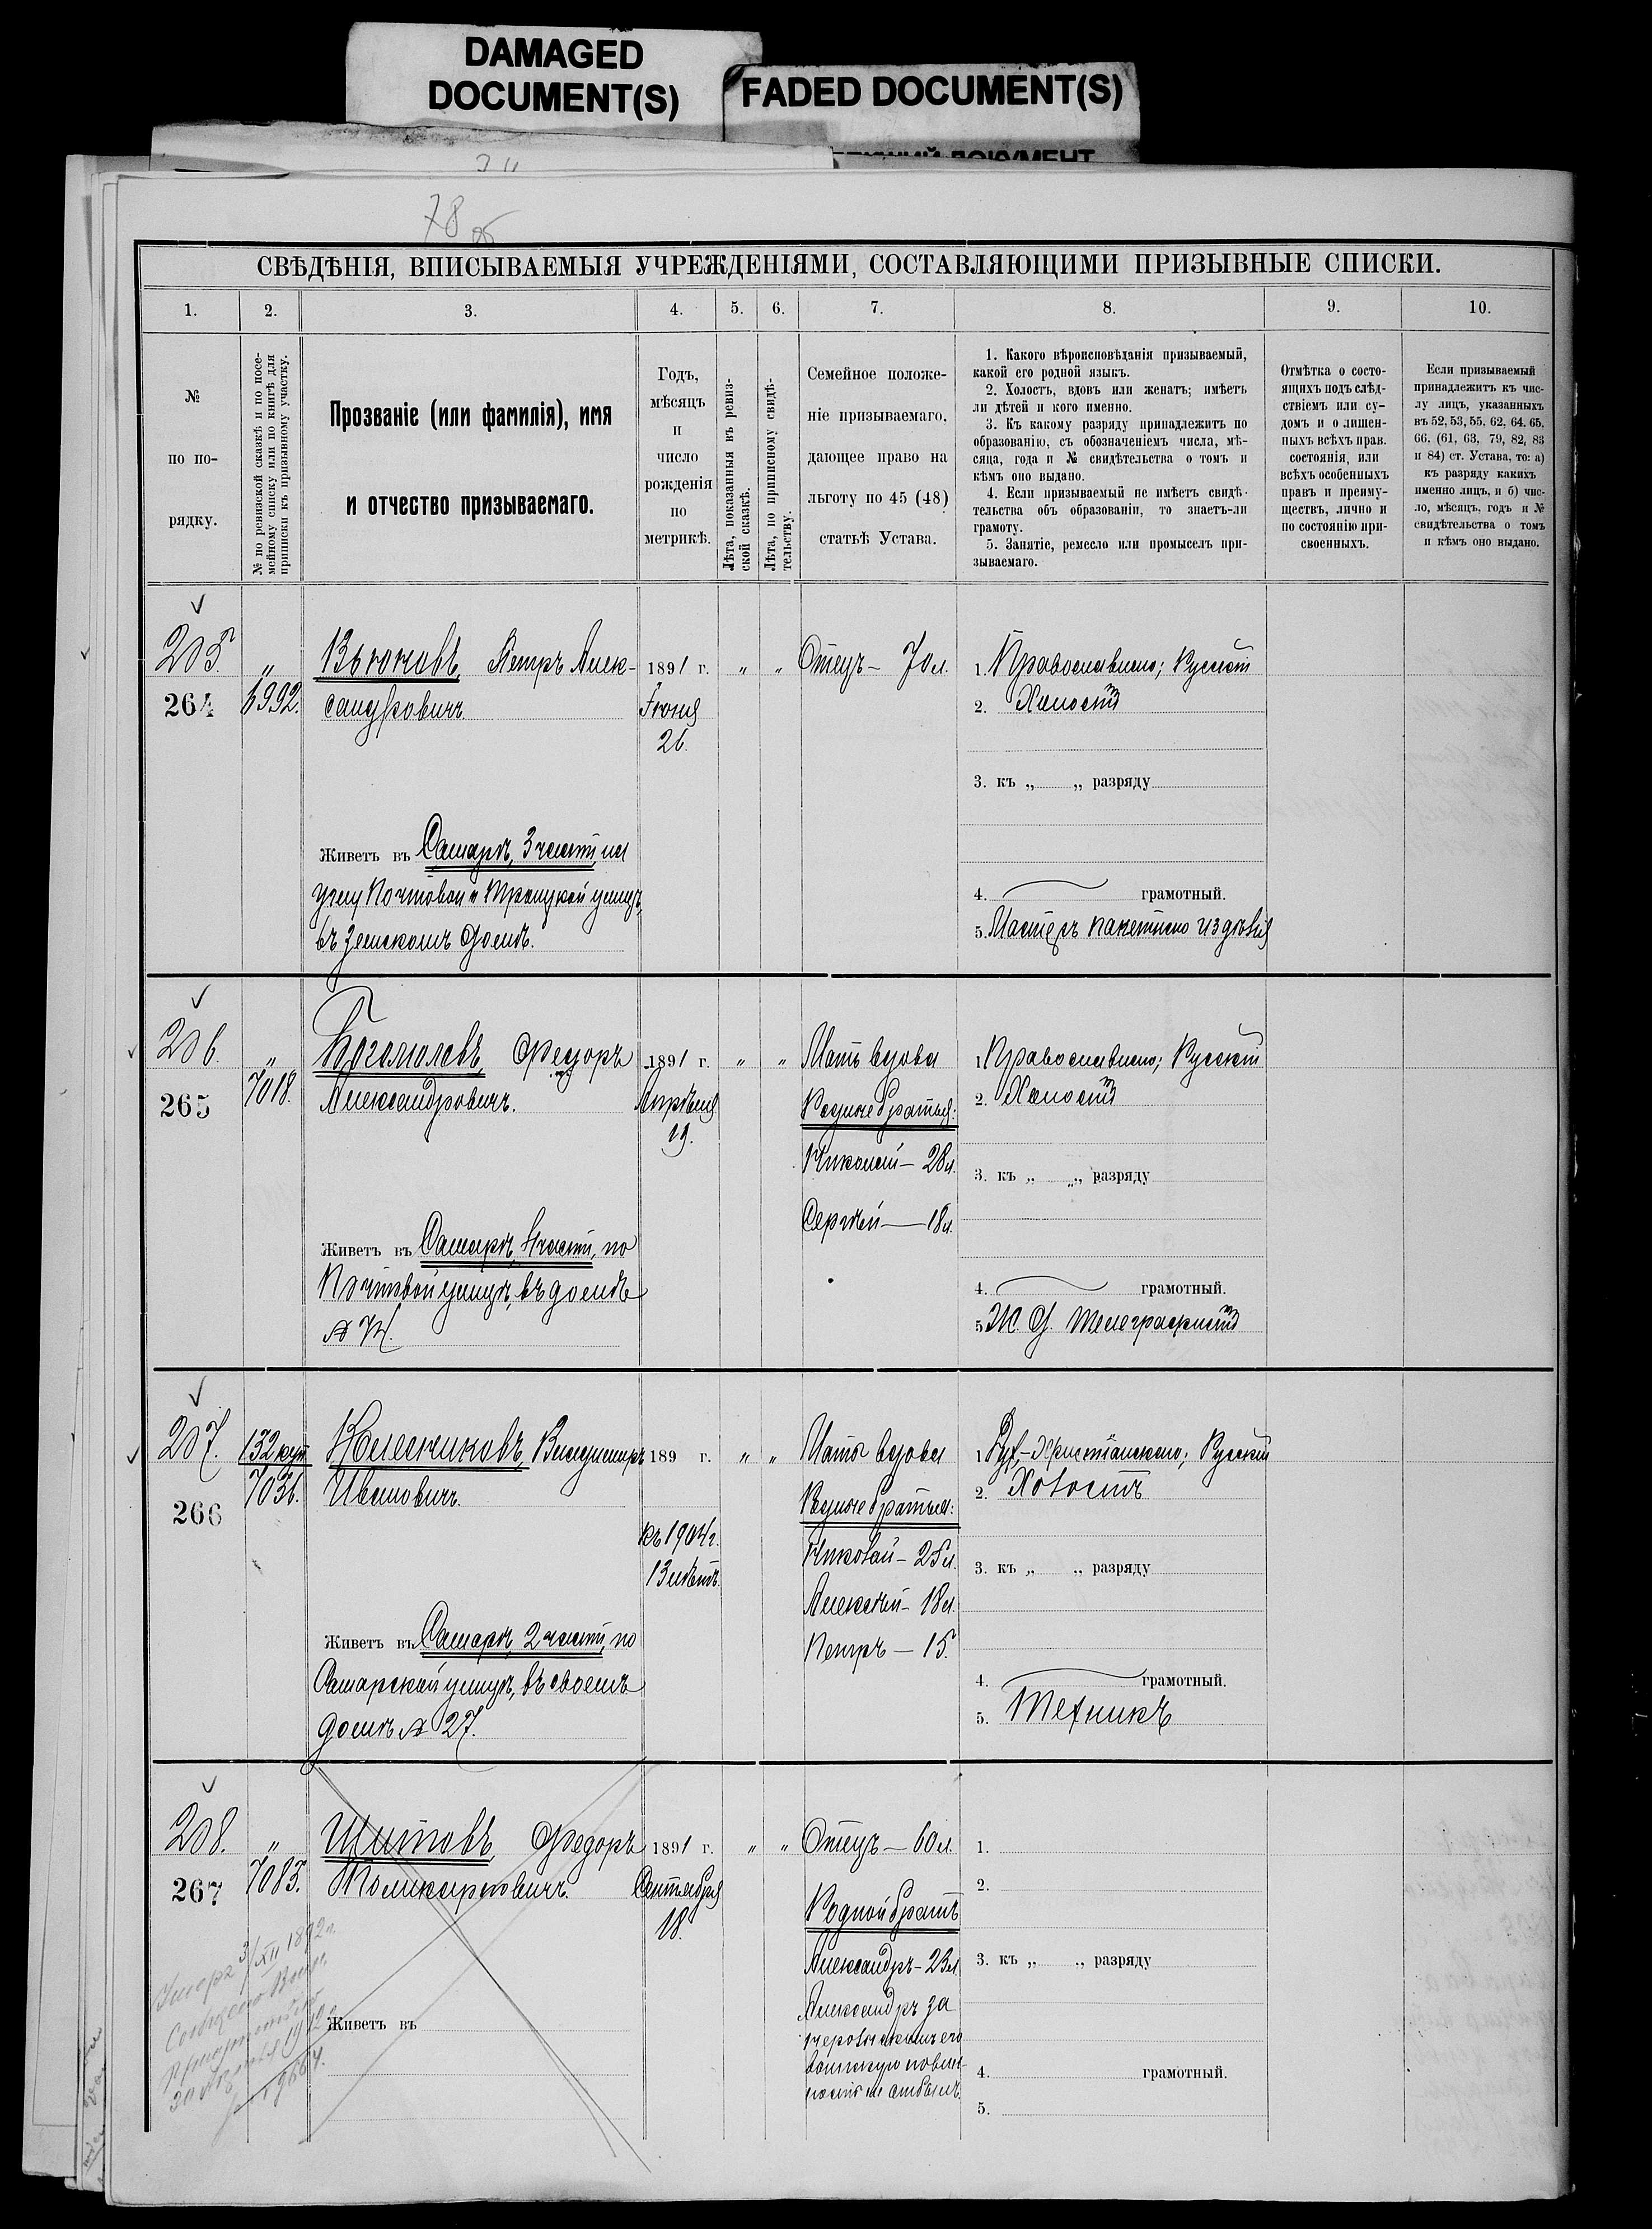 DAMAGED
DOCUMENT(S)
FADED DOCUMENT(S)
78 об
СВѢДѢНІЯ, ВПИСЫВАЕМЫЯ УЧРЕЖДЕНІЯМИ, СОСТАВЛЯЮЩИМИ ПРИЗЫВНЫЕ СПИСКИ.
1. 2. 3. 4. 5. 6. 7. 8. 9. 10.
№
по по-
рядку.
№ по ревизской сказкѣ и по посе-
мейному списку или по книгѣ для
приписки къ призывному участку.
Прозваніе (или фамилія), имя
и отчество призываемаго.
Годъ,
мѣсяцъ
и
число
рожденія
по
метрикѣ.
Лѣта, показанныя въ ревиз-
ской сказкѣ.
Лѣта, по приписному свидѣ-
тельству.
Семейное положе-
ніе призываемаго,
дающее право на
льготу по 45 (48)
статьѣ Устава.
1. Какого вѣроисповѣданія призываемый,
какой его родной языкъ.
2. Холостъ, вдовъ или женатъ; имѣетъ
ли дѣтей и кого именно.
3. Къ какому разряду принадлежитъ по
образованію, съ обозначеніемъ числа, мѣ-
сяца, года и № свидѣтельства о томъ и
кѣмъ оно выдано.
4. Если призываемый не имѣетъ свидѣ-
тельства объ образованіи, то знаетъ-ли
грамоту.
5. Занятіе, ремесло или промыселъ при-
зываемаго.
Отмѣтка о состо-
ящихъ подъ слѣд-
ствіемъ или су-
домъ и о лишен-
ныхъ всѣхъ прав.
состоянія, или
всѣхъ особенныхъ
правъ и преиму-
ществъ, лично и
по состоянію при-
своенныхъ.
Если призываемый
принадлежитъ къ чис-
лу лицъ, указанныхъ
въ 52, 53, 55, 62, 64, 65,
66, (61, 63, 79, 82, 83
и 84) ст. Устава, то: а)
къ разряду какихъ
именно лицъ, и б) чис-
ло, мѣсяцъ, годъ и №
свидѣтельства о томъ
и кѣмъ оно выдано.
205.
264
"
6992.
Вьюновъ, Петръ Алек-
сандровичъ.
Живетъ въ Самарѣ, 3 части, на
углу Почтовой и Троицкой улицъ,
въ Земскомъ домѣ.
1891 г.
Іюня
26.
" "
Отецъ — 70 л.
1. Православнаго; Русскій
2. Холостъ
3. къ „ „ разряду
4. грамотный.
5. Мастеръ издѣлія
206.
265
"
7018.
Богомоловъ, Федоръ
Александровичъ.
Живетъ въ Самарѣ, 4 части, по
Почтовой улицѣ, въ домѣ
1891 г.
Апрѣля
19.
" "
Мать вдова
Родные братья:
Николай — 28 л.
Сергѣй — 18 л.
1. Православнаго; Русскій
2. Холостъ
3. къ „ „ разряду
4. грамотный.
5. Ж. д. Телеграфистъ
207.
266
7036.
Владиміръ
Ивановичъ.
Живетъ въ Самарѣ, 2 части, по
Самарской улицѣ, въ своемъ
домѣ № 27.
189 г.
къ 1904 г.
13 лѣтъ.
" "
Мать вдова
Родные братья:
Николай — 25 л.
Алексѣй — 18 л.
Петръ — 15.
Русскій
2. Холостъ
3. къ „ „ разряду
4. грамотный.
5. Техникъ
208.
267
"
7085.
Шитовъ, Федоръ
Поликарповичъ.
Живетъ въ
1891 г.
Сентября
18.
" "
Отецъ — 60 л.
Родной братъ
Александръ — 23 л.
Александръ за
воинскую повин-
1.
2.
3. къ „ „ разряду
4. грамотный.
5.
Умеръ 3/XII 1892 г.